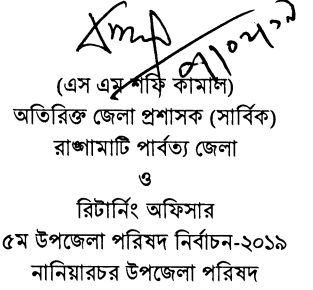 (এস এম শফি কামাল)
অতিরিক্ত জেলা প্রশাসক (সার্বিক)
রাঙ্গামাটি পার্বত্য জেলা
ও
রিটার্নিং অফিসার
৫ম উপজেলা পরিষদ নির্বাচন-২০১৯
নানিয়ারচর উপজেলা পরিষদ